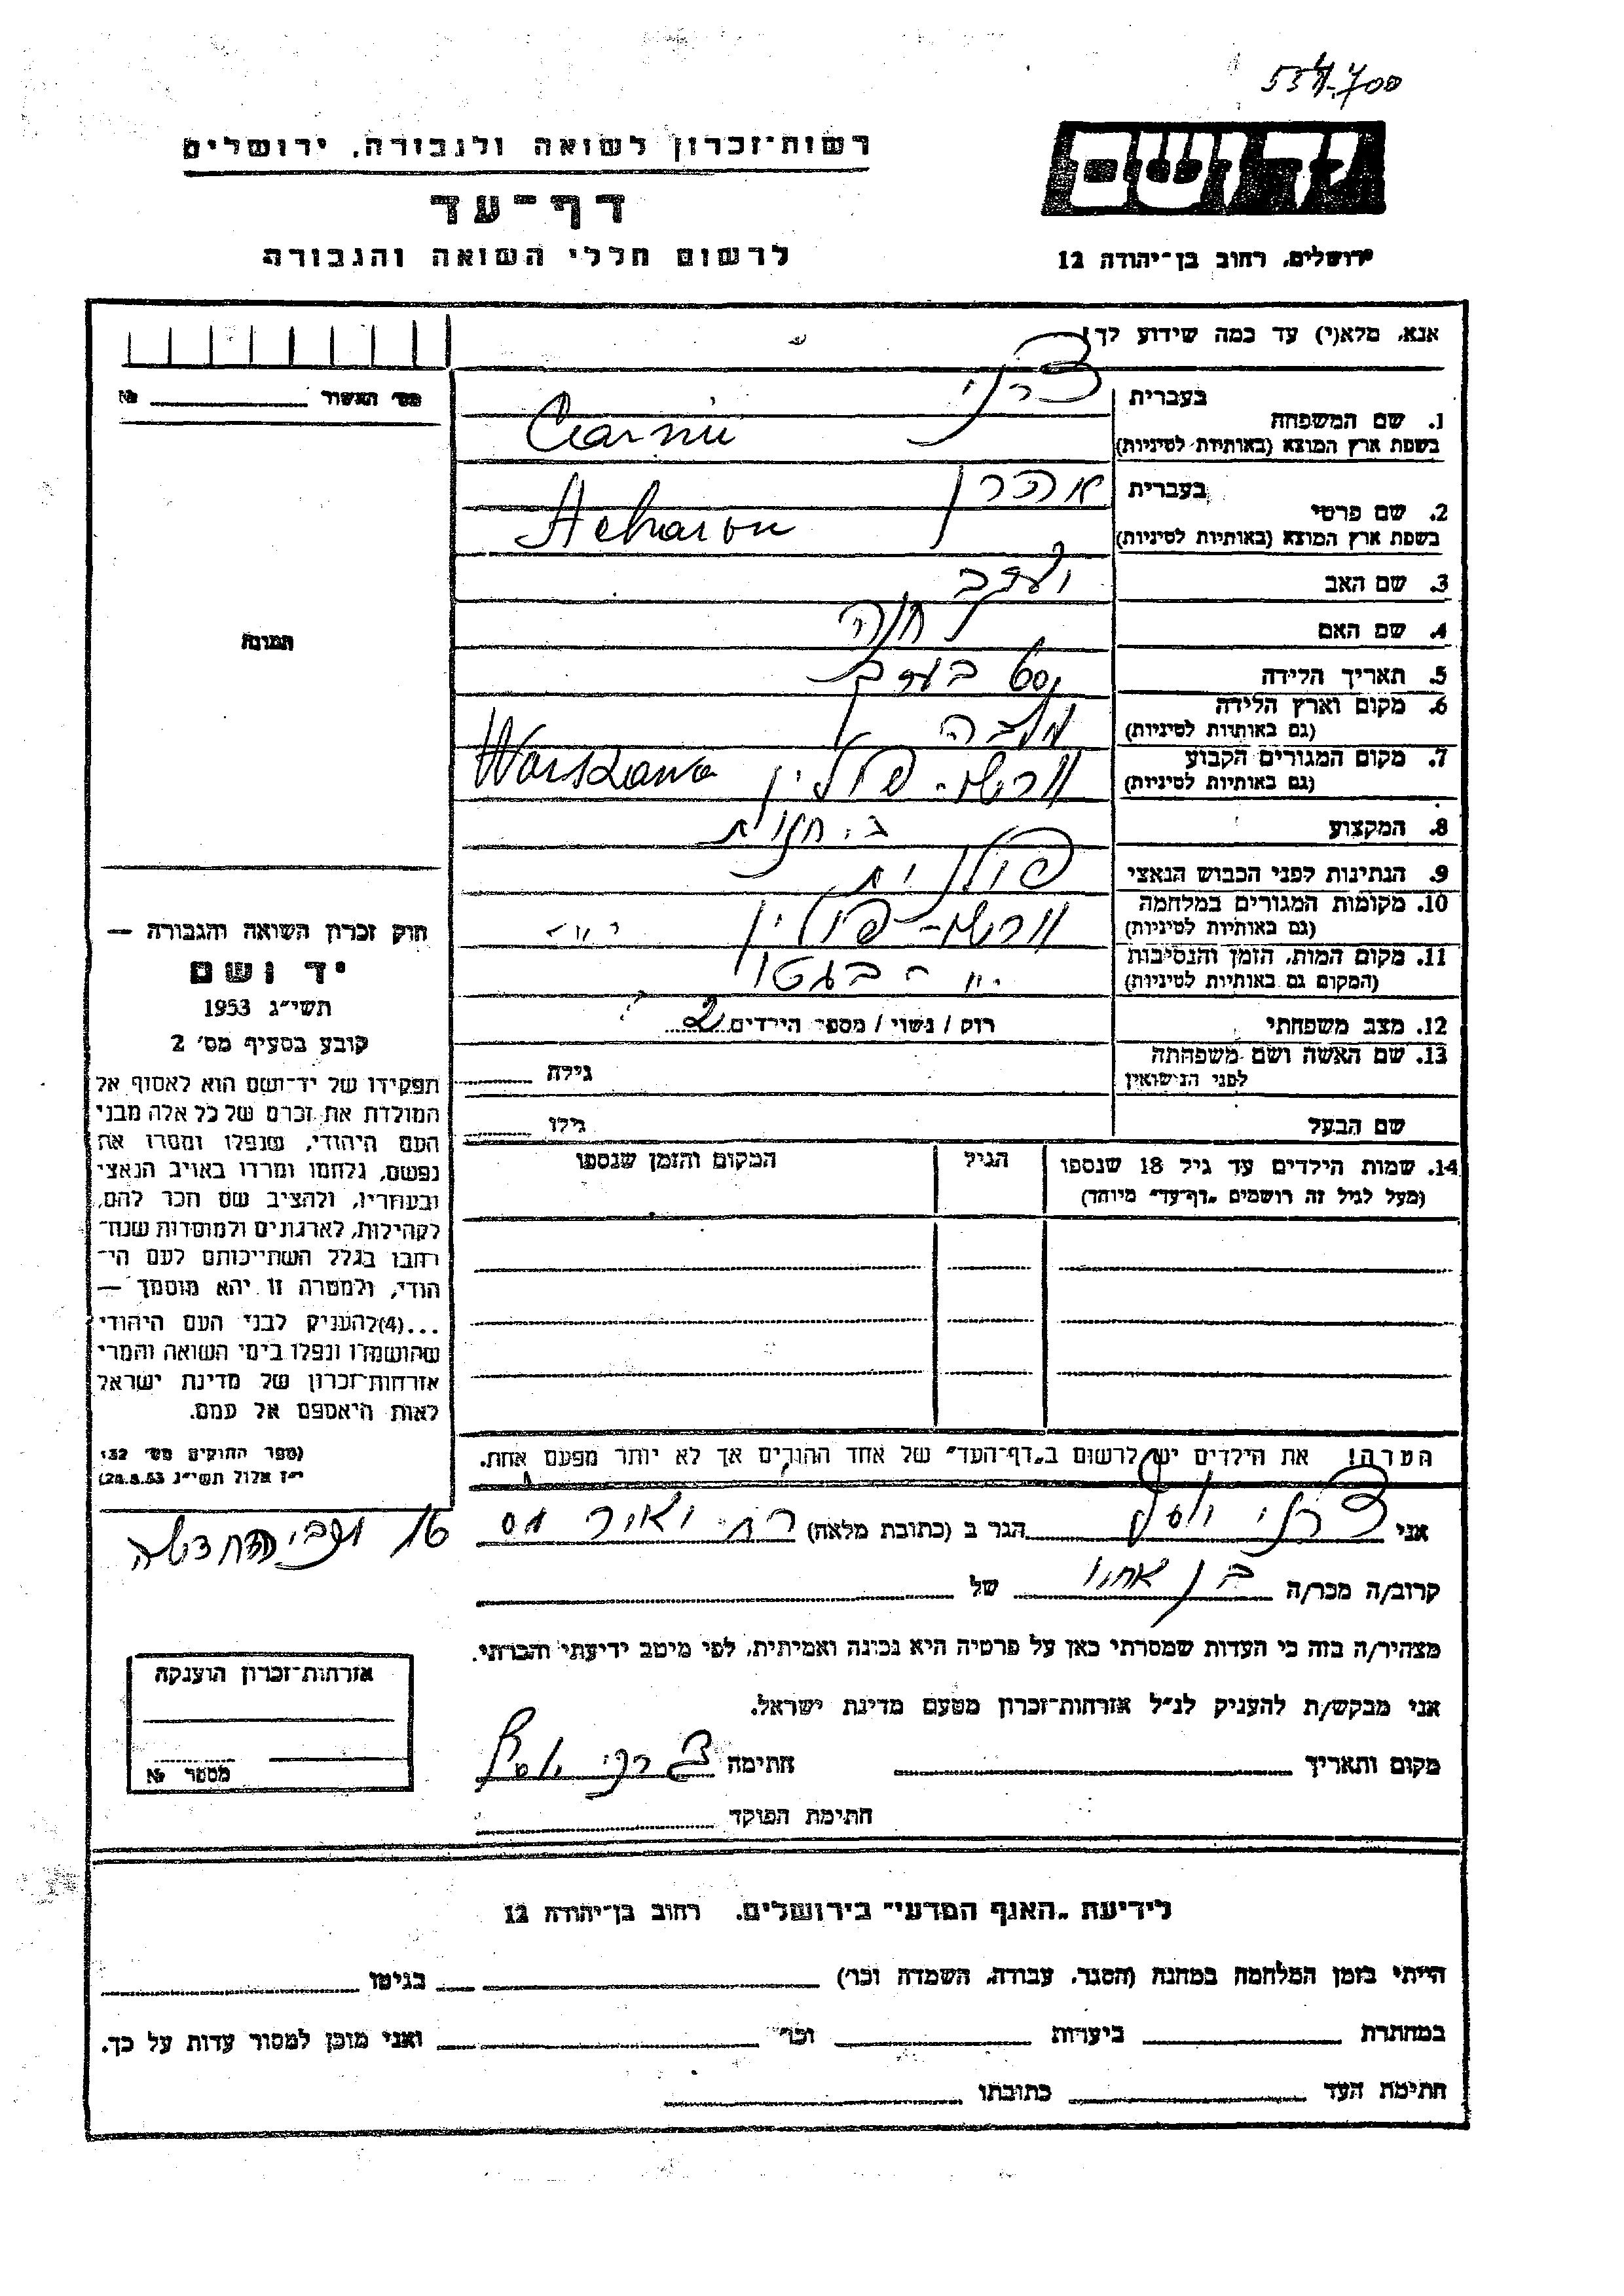 554.700
רשות־זכרון לשואה ולגבורה, ירושלים
דף־עד
לרשום חללי השואה והגבורה
ידושם
ירושלים, רחוב בן־יהודה 12
אנא, מלא(י) עד כמה שידוע לך!
מס׳ האשור №
1. שם המשפחה
בעברית צ׳רני
בשפת ארץ המוצא (באותיות לטיניות) Czarni
2. שם פרטי
בעברית אהרן
בשפת ארץ המוצא (באותיות לטיניות) Acharon
3. שם האב יעקב
4. שם האם חנה
5. תאריך הלידה 60 בערך
6. מקום וארץ הלידה
(גם באותיות לטיניות)
7. מקום המגורים הקבוע ורשא - פולין Warszawa
(גם באותיות לטיניות)
8. המקצוע ב. חנות
9. הנתינות לפני הכבוש הנאצי פולנית
10. מקומות המגורים במלחמה ורשא - פולין
(גם באותיות לטיניות)
11. מקום המות, הזמן והנסיבות -״- בגטו
(המקום גם באותיות לטיניות)
12. מצב משפחתי רוק / נשוי / מספר הילדים 2 ?
13. שם האשה ושם משפחתה גילה
לפני הנישואין
שם הבעל גילו
14. שמות הילדים עד גיל 18 שנספו הגיל המקום והזמן שנספו
(מעל לגיל זה רושמים „דף־עד״ מיוחד)
הערה! את הילדים יש לרשום ב„דף־העד״ של אחד ההורים אך לא יותר מפעם אחת.
תמונה
חוק זכרון השואה והגבורה —
יד ושם
תשי״ג 1953
קובע בסעיף מס׳ 2
תפקידו של יד־ושם הוא לאסוף אל
המולדת את זכרם של כל אלה מבני
העם היהודי, שנפלו ומסרו את
נפשם, נלחמו ומרדו באויב הנאצי
ובעוזריו, ולהציב שם וזכר להם,
לקהילות, לארגונים ולמוסדות שנח־
רבו בגלל השתייכותם לעם הי־
הודי, ולמטרה זו יהא מוסמך —
...(4)להעניק לבני העם היהודי
שהושמדו ונפלו בימי השואה והמרי
אזרחות־זכרון של מדינת ישראל
לאות היאספם אל עמם.
(ספר החוקים מס׳ 132,
י״ז אלול תשי״ג 28.8.53)
אני צ׳רני יוסף הגר ב (כתובת מלאה)
קרוב/ה מכר/ה בן אחיו של
מצהיר/ה בזה כי העדות שמסרתי כאן על פרטיה היא נכונה ואמיתית, לפי מיטב ידיעתי והכרתי.
אני מבקש/ת להעניק לנ״ל אזרחות־זכרון מטעם מדינת ישראל.
מקום ותאריך חתימה צ׳רני יוסף
חתימת הפוקד
אזרחות־זכרון הוענקה
מספר №
לידיעת „האגף המדעי״ בירושלים, רחוב בן־יהודה 12
הייתי בזמן המלחמה במחנה (הסגר, עבודה, השמדה וכו׳) בגיטו
במחתרת ביערות וכו׳ ואני מוכן למסור עדות על כך.
חתימת העד כתובתו